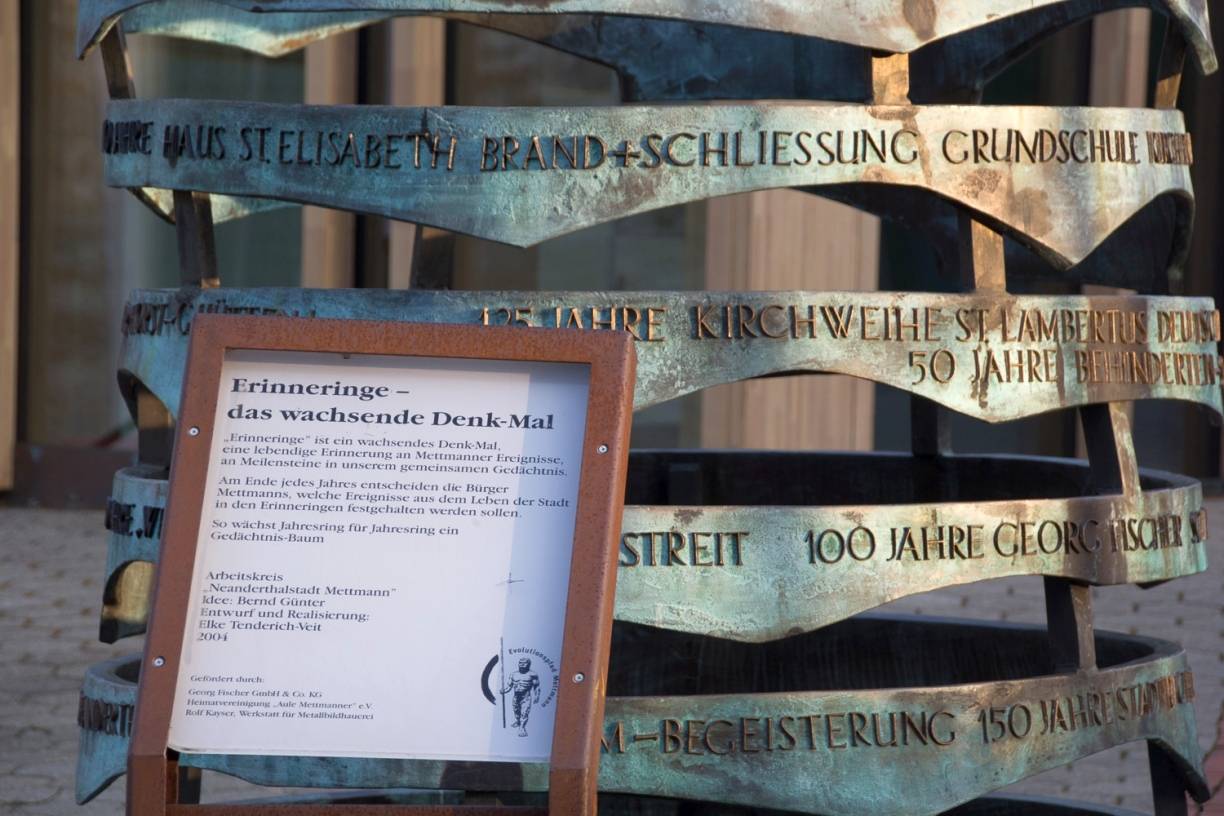 JAHRE HAUS ST. ELISABETH BRAND+SCHLIESSUNG GRUNDSCHULE
125 JAHRE KIRCHWEIHE ST. LAMBERTUS
50 JAHRE
STREIT 100 JAHRE GEORG FISCHER
-BEGEISTERUNG 150 JAHRE
Erinneringe –
das wachsende Denk-Mal
„Erinneringe" ist ein wachsendes Denk-Mal,
eine lebendige Erinnerung an Mettmanner Ereignisse,
an Meilensteine in unserem gemeinsamen Gedächtnis.
Am Ende jedes Jahres entscheiden die Bürger
Mettmanns, welche Ereignisse aus dem Leben der Stadt
in den Erinneringen festgehalten werden sollen.
So wächst Jahresring für Jahresring ein
Gedächtnis-Baum
Arbeitskreis
„Neanderthalstadt Mettmann"
Idee: Bernd Günter
Entwurf und Realisierung:
Elke Tenderich-Veit
2004
Gefördert durch:
Georg Fischer GmbH & Co. KG
Heimatvereinigung „Aule Mettmanner" e.V.
Rolf Kayser, Werkstatt für Metallbildhauerei
Evolutionspfad Mettmann